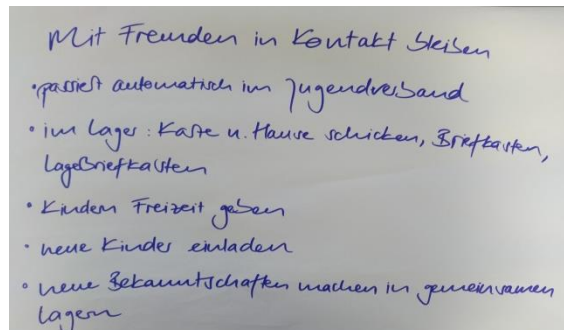 Mit Freunden in Kontakt bleiben
• passiert automatisch im Jugendverband
• im Lager: Karte n. Hause schicken, Briefkasten,
Lagerbriefkasten
• Kindern Freizeit geben
• neue Kinder einladen
• neue Bekanntschaften machen in gemeinsamen
Lagern